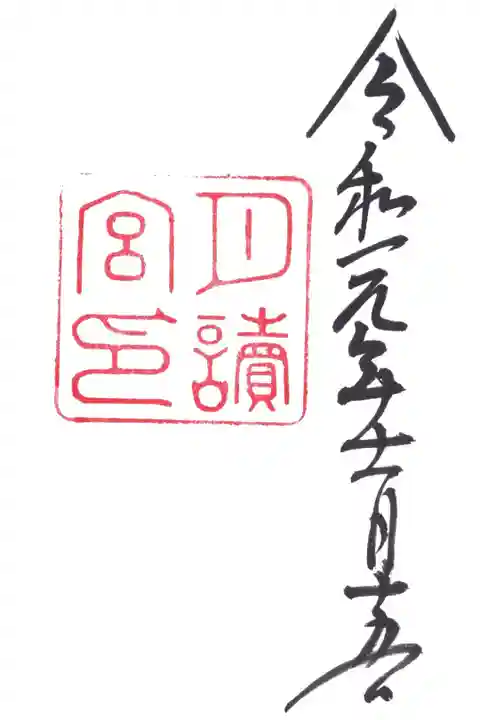 令和元年十一月十五日
月讀宮印